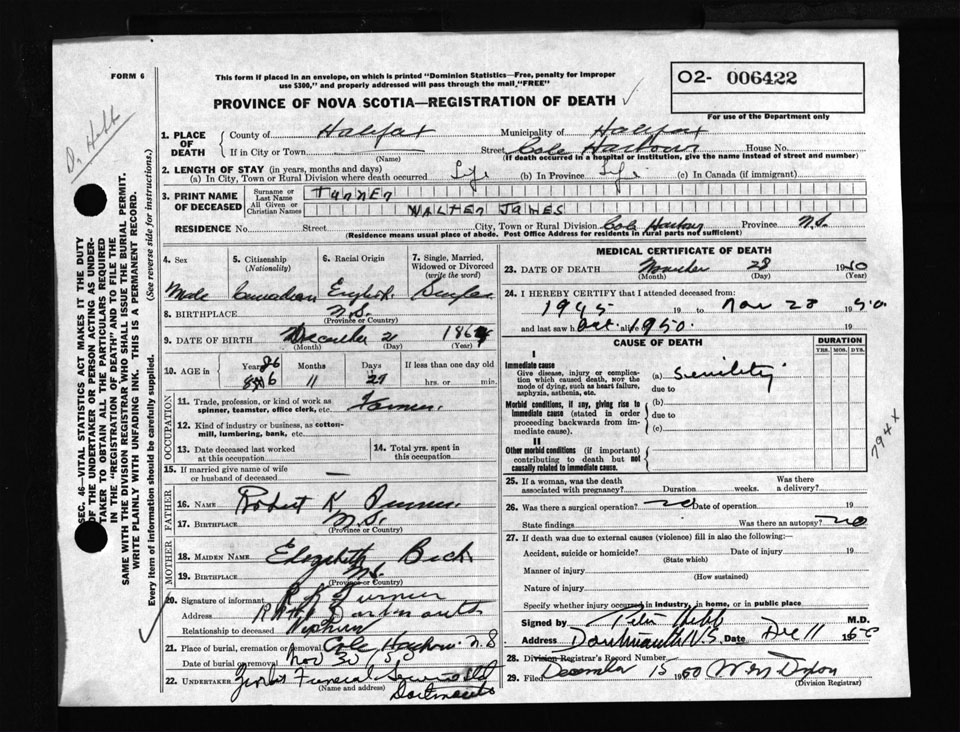 FORM 6
This form if placed in an envelope, on which is printed "Dominion Statistics—Free, penalty for improper
use $300," and properly addressed will pass through the mail "FREE"
O2- 006422
For use of the Department only
PROVINCE OF NOVA SCOTIA—REGISTRATION OF DEATH
Dr Hebb
SEC. 46—VITAL STATISTICS ACT MAKES IT THE DUTY
OF THE UNDERTAKER OR PERSON ACTING AS UNDER-
TAKER TO OBTAIN ALL THE PARTICULARS REQUIRED
IN THE "REGISTRATION OF DEATH" AND TO FILE THE
SAME WITH THE DIVISION REGISTRAR WHO SHALL ISSUE THE BURIAL PERMIT.
WRITE PLAINLY WITH UNFADING INK. THIS IS A PERMANENT RECORD.
Every item of information should be carefully supplied. (See reverse side for instructions.)
1. PLACE OF DEATH
County of Halifax Municipality of Halifax
If in City or Town Street Cole Harbour House No.
(Name) (If death occurred in a hospital or institution, give the name instead of street and number)
2. LENGTH OF STAY (in years, months and days)
(a) In City, Town or Rural Division where death occurred Life (b) In Province Life (c) In Canada (if immigrant)
3. PRINT NAME OF DECEASED
Surname or Last Name Turner
All Given or Christian Names WALTER JAMES
RESIDENCE No. Street City, Town or Rural Division Cole Harbour Province N.S.
(Residence means usual place of abode. Post Office Address for residents in rural parts not sufficient)
4. Sex 5. Citizenship (Nationality) 6. Racial Origin 7. Single, Married, Widowed or Divorced (write the word)
Male Canadian English Single
8. BIRTHPLACE N.S.
(Province or Country)
9. DATE OF BIRTH December 2 1864
(Month) (Day) (Year)
10. AGE in Years 86 Months 11 Days 29 If less than one day hrs. or min.
OCCUPATION
11. Trade, profession, or kind of work as spinner, teamster, office clerk, etc. Farmer
12. Kind of industry or business, as cotton-mill, lumbering, bank, etc.
13. Date deceased last worked at this occupation
14. Total yrs. spent in this occupation
15. If married give name of wife or husband of deceased —
FATHER
16. NAME Robert K Turner
17. BIRTHPLACE N.S.
(Province or Country)
MOTHER
18. MAIDEN NAME Elizabeth Beck
19. BIRTHPLACE N.S.
(Province or Country)
20. Signature of informant Turner
Address Dartmouth
Relationship to deceased Nephew
21. Place of burial, cremation or removal Cole Harbour N.S
Date of burial or removal Nov 30 50
22. UNDERTAKER Funeral Service Ltd
(Name and address) Dartmouth
MEDICAL CERTIFICATE OF DEATH
23. DATE OF DEATH November 28 1950
(Month) (Day) (Year)
24. I HEREBY CERTIFY that I attended deceased from:
1945 19 to Nov 28 1950.
and last saw h alive Oct. 1950. 19
CAUSE OF DEATH DURATION
YRS. MOS. DYS.
I
Immediate cause
Give disease, injury or complication which caused death, NOT the mode of dying, such as heart failure, asphyxia, asthenia, etc.
(a) Senility
due to
Morbid conditions, if any, giving rise to immediate cause (stated in order proceeding backwards from immediate cause).
(b)
due to
(c)
II
Other morbid conditions (if important) contributing to death but not causally related to immediate cause.
794X
25. If a woman, was the death associated with pregnancy? Duration weeks. Was there a delivery?
26. Was there a surgical operation? no Date of operation 19
State findings Was there an autopsy? no
27. If death was due to external causes (violence) fill in also the following:—
Accident, suicide or homicide? Date of injury 19
(State which)
Manner of injury
(How sustained)
Nature of injury
Specify whether injury occurred in industry, in home, or in public place
Signed by Peter Hebb M.D.
Address Dartmouth N.S. Date Dec 11 1950
28. Division Registrar's Record Number
29. Filed December 15 1950
(Division Registrar)